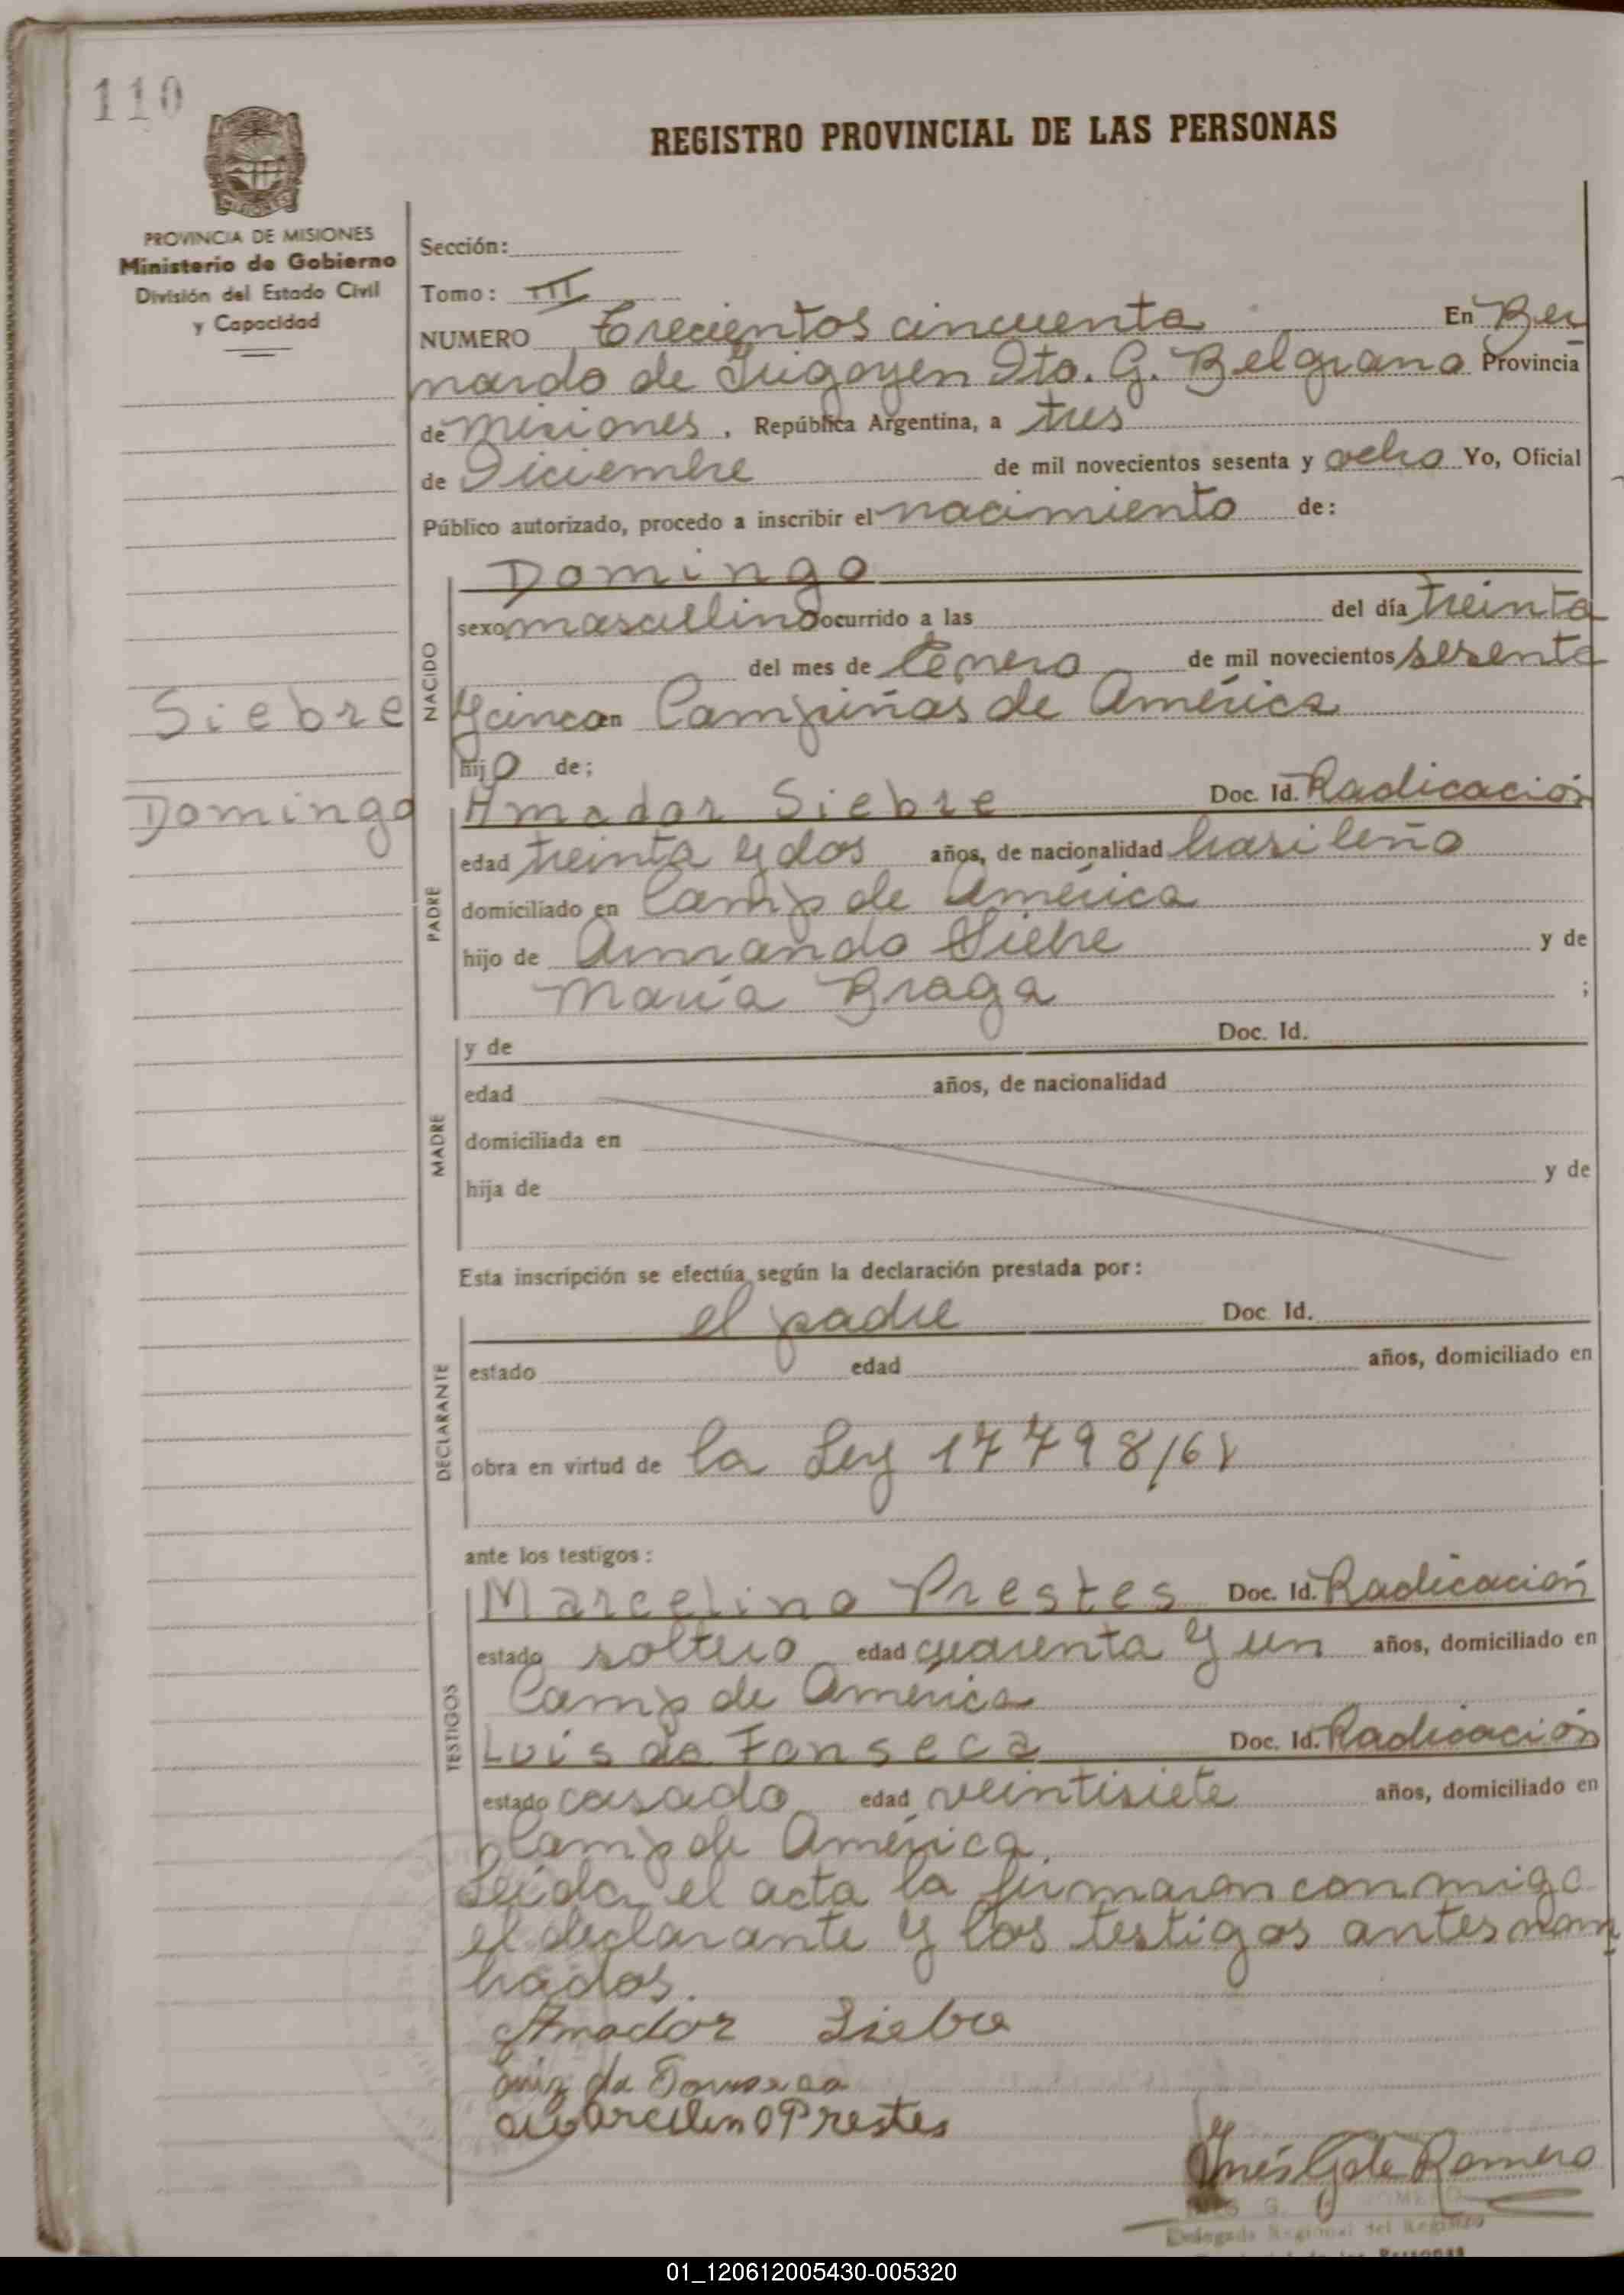 110
REGISTRO PROVINCIAL DE LAS PERSONAS
PROVINCIA DE MISIONES
Ministerio de Gobierno
División del Estado Civil
y Capacidad
Siebre
Domingo
Sección:
Tomo: III
NUMERO Trecientos cincuenta En Ber
nardo de Irigoyen Dto. G. Belgrano Provincia
de Misiones, República Argentina, a tres
de Diciembre de mil novecientos sesenta y ocho Yo, Oficial
Público autorizado, procedo a inscribir el nacimiento de:
NACIDO
Domingo
sexo masculino ocurrido a las del día treinta
del mes de Enero de mil novecientos sesenta
y cinco en Campiñas de América
hijo de;
PADRE
Amador Siebre Doc. Id. Radicación
edad treinta y dos años, de nacionalidad brasileño
domiciliado en Camp de América
hijo de Armando Siebre y de
María Braga ;
MADRE
y de Doc. Id.
edad años, de nacionalidad
domiciliada en
hija de y de
Esta inscripción se efectúa según la declaración prestada por:
DECLARANTE
el padre Doc. Id.
estado edad años, domiciliado en
obra en virtud de la Ley 17798/68
ante los testigos:
TESTIGOS
Marcelino Prestes Doc. Id. Radicación
estado soltero edad cuarenta y un años, domiciliado en
Camp de América
Luis da Fonseca Doc. Id. Radicación
estado casado edad veintisiete años, domiciliado en
Camp de América.
Leída el acta la firmaron conmigo
el declarante y los testigos antes nom
brados.
Amador Siebre
Luiz da Fonseca
Marcelino Prestes
Inés G de Romero
Delegada Regional del Registro
Personas
01_120612005430-005320